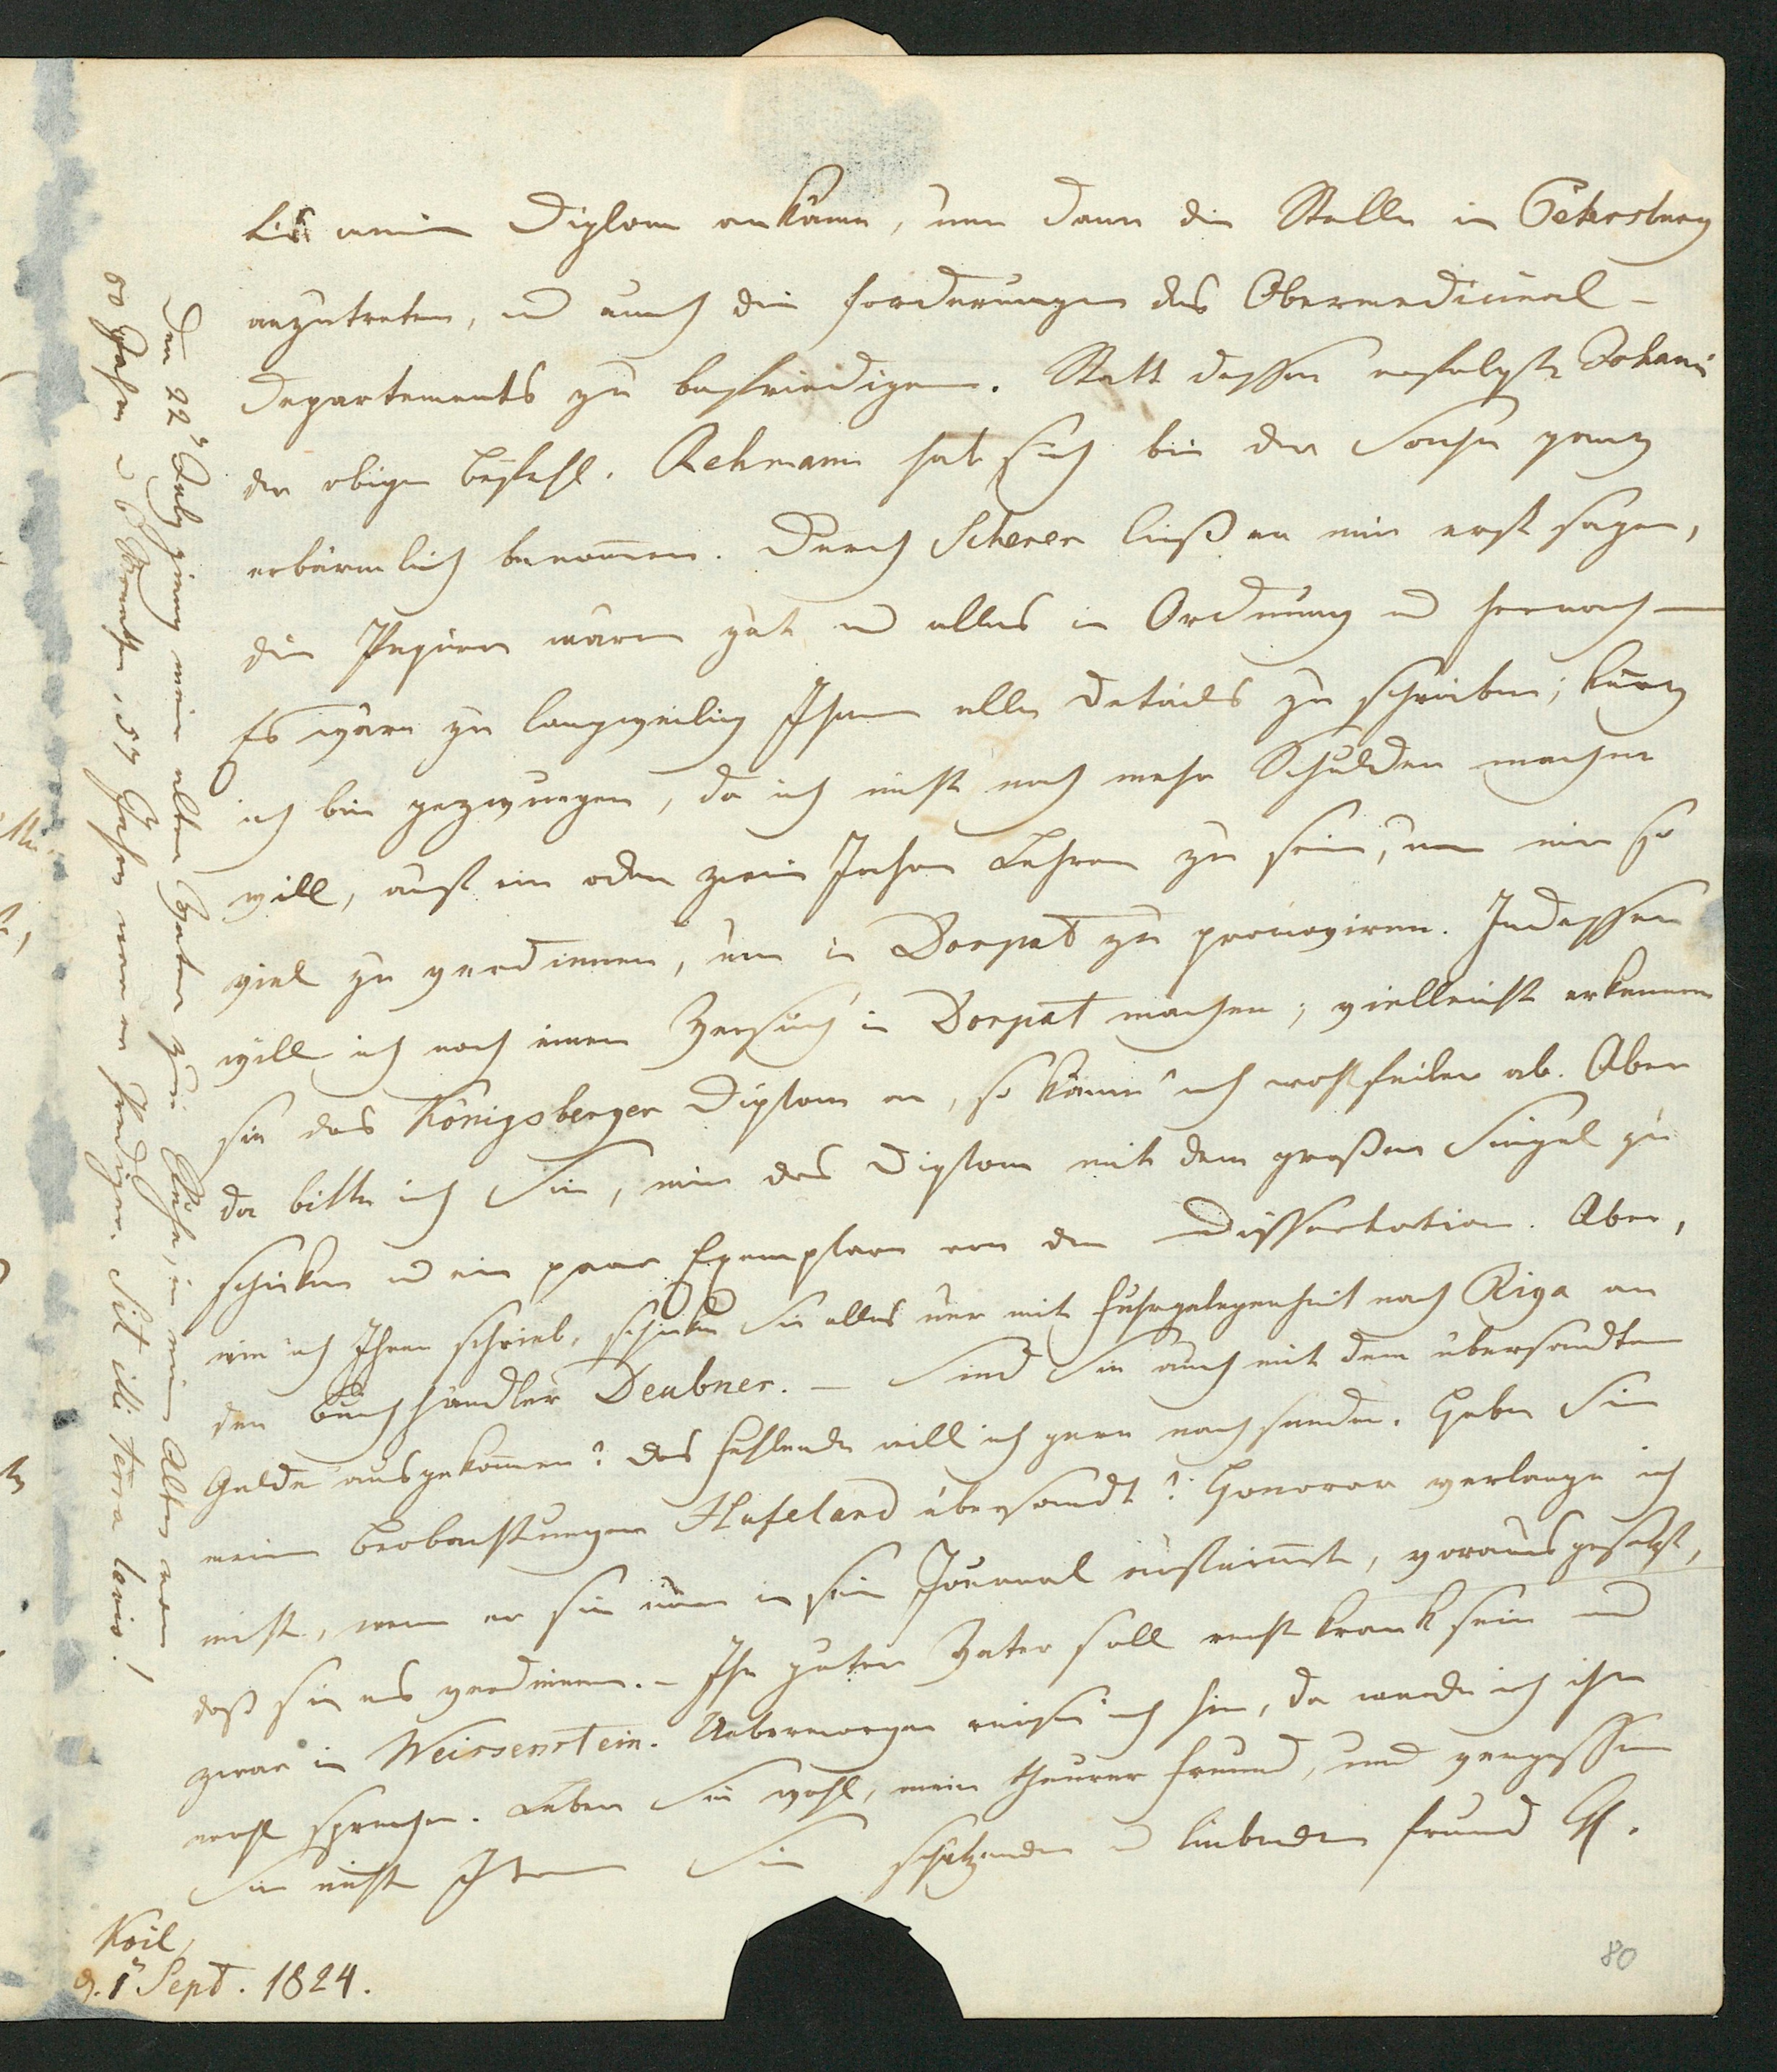 bis mein Diplom ankäme, um dann die Stelle in Petersburg
anzutreten, u auch die Forderungen des Obermedicinal-
departements zu befriedigen. Statt dessen erfolgte Johanni
der obige Befehl. Rehmann hat sich bei der Sache ganz
erbärmlich benommen. Durch Scherer ließ er mir erst sagen,
die Papiere wären gut u alles in Ordnung u hernach —
Es wäre zu langweilig Ihnen alle Details zu schreiben; kurz
ich bin gezwungen, da ich nicht noch mehr Schulden machen
will, auf ein oder zwei Jahre Lehrer zu sein, um mir so
viel zu verdienen, um in Dorpat zu promoviren. Indessen
will ich noch einen Versuch in Dorpat machen; vielleicht erkennen
sie das Königsberger Diplom an, so käme ich wohlfeiler ab. Aber
da bitte ich Sie, mir das Diplom mit dem großen Siegel zu
schicken u ein paar Exemplare von der Dissertation. Aber,
wie ich Ihnen schrieb, schicken Sie alles nur mit Fuhrgelegenheit nach Riga an
den Buchhändler Deubner. — Sind Sie auch mit dem übersandten
Gelde ausgekommen? das Fehlende will ich gern nachsenden. Haben Sie
meine Beobachtungen Hufeland übersandt? Honorar verlange ich
nicht, wenn er sie nur in sein Journal aufnimmt, vorausgesetzt,
daß sie es verdienen. — Ihr guter Vater soll recht krank sein u
zwar in Weissenstein. Uebermorgen reise ich hin, da werde ich ihn
wohl sprechen. Leben Sie wohl, mein theurer Freund, und vergessen
Sie nicht Ihren Sie schätzenden u liebenden Freund
Koil,
d. 1 Sept. 1824.
Den 22 July ging mein alter Vater zur Ruhe, in einem Alter von
80 Jahren u 6 Monathen, 57 Jahre war er Prediger. Sit illi terra levis!
80